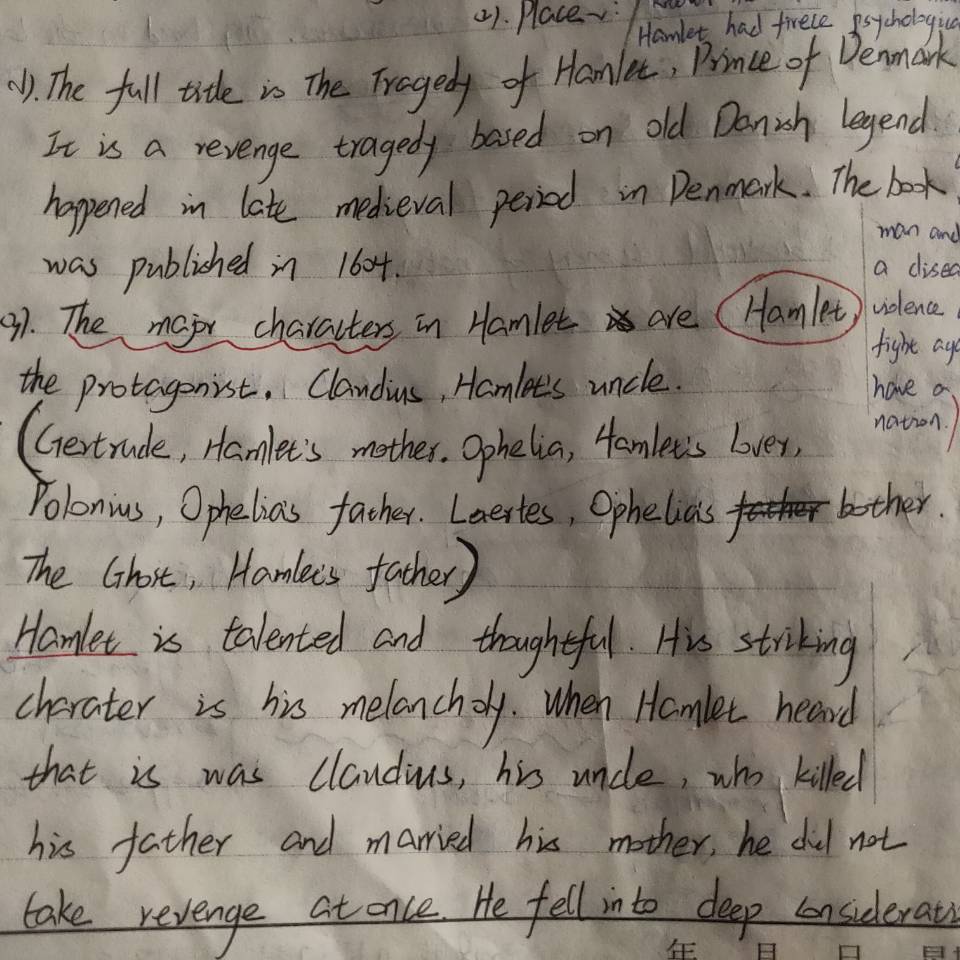 2). Place
Hamlet had firece
1). The full title is The Tragedy of Hamlet, Prince of Denmark
It is a revenge tragedy based on old Danish legend.
happened in late medieval period in Denmark. The book
was published in 1604.
man and
a
violence
fight
have a
nation.
The major characters in Hamlet are Hamlet,
the protagonist. Claudius, Hamlet's uncle.
(Gertrude, Hamlet's mother. Ophelia, Hamlet's lover,
Polonius, Ophelia's father. Laertes, Ophelia's father bother.
The Ghost, Hamlet's father)
Hamlet is talented and thoughtful. His striking
charater is his melancholy. When Hamlet heard
that is was Claudius, his uncle, who killed
his father and married his mother, he did not
take revenge at once. He fell into deep
年 月 日